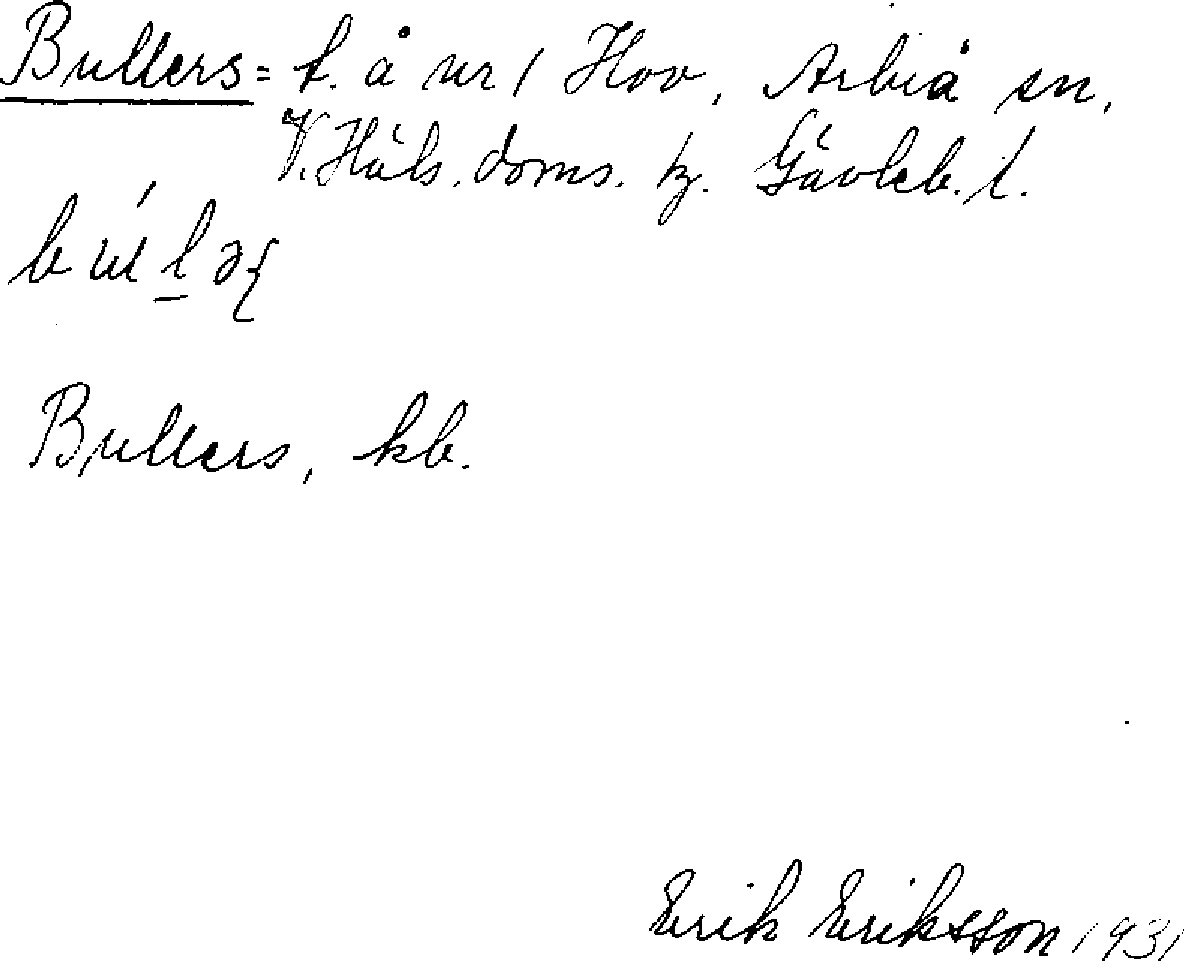 Bullers = f. å nr 1 Hov, Arbrå sn,
V. Häls. doms. tg. Gävleb. l.
Bullers, kb.
Erik Eriksson 1931